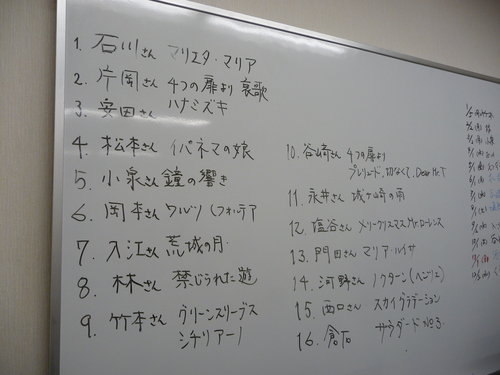 1. 石川さん マリエタ・マリア
2. 片岡さん 4つの扉より 哀歌
3. 安田さん ハナミズキ
4. 松本さん イパネマの娘
5. 小泉さん 鐘の響き
6. 岡本さん ワルツ (フォルテア
7. 入江さん 荒城の月
8. 林さん 禁じられた遊
9. 竹本さん グリーンスリーブス
シチリアーノ
10. 谷崎さん 4つの扉より
プレリュード、切なくて、Dear Mr.T
11. 永井さん 城ヶ崎の雨
12. 塩谷さん メリークリスマスMr.ローレンス
13. 門田さん マリア・ルイサ
14. 河野さん ノクターン(ヘンツェ)
15. 西口さん スカイグラデーション
16. 倉石 サウダードNo3.